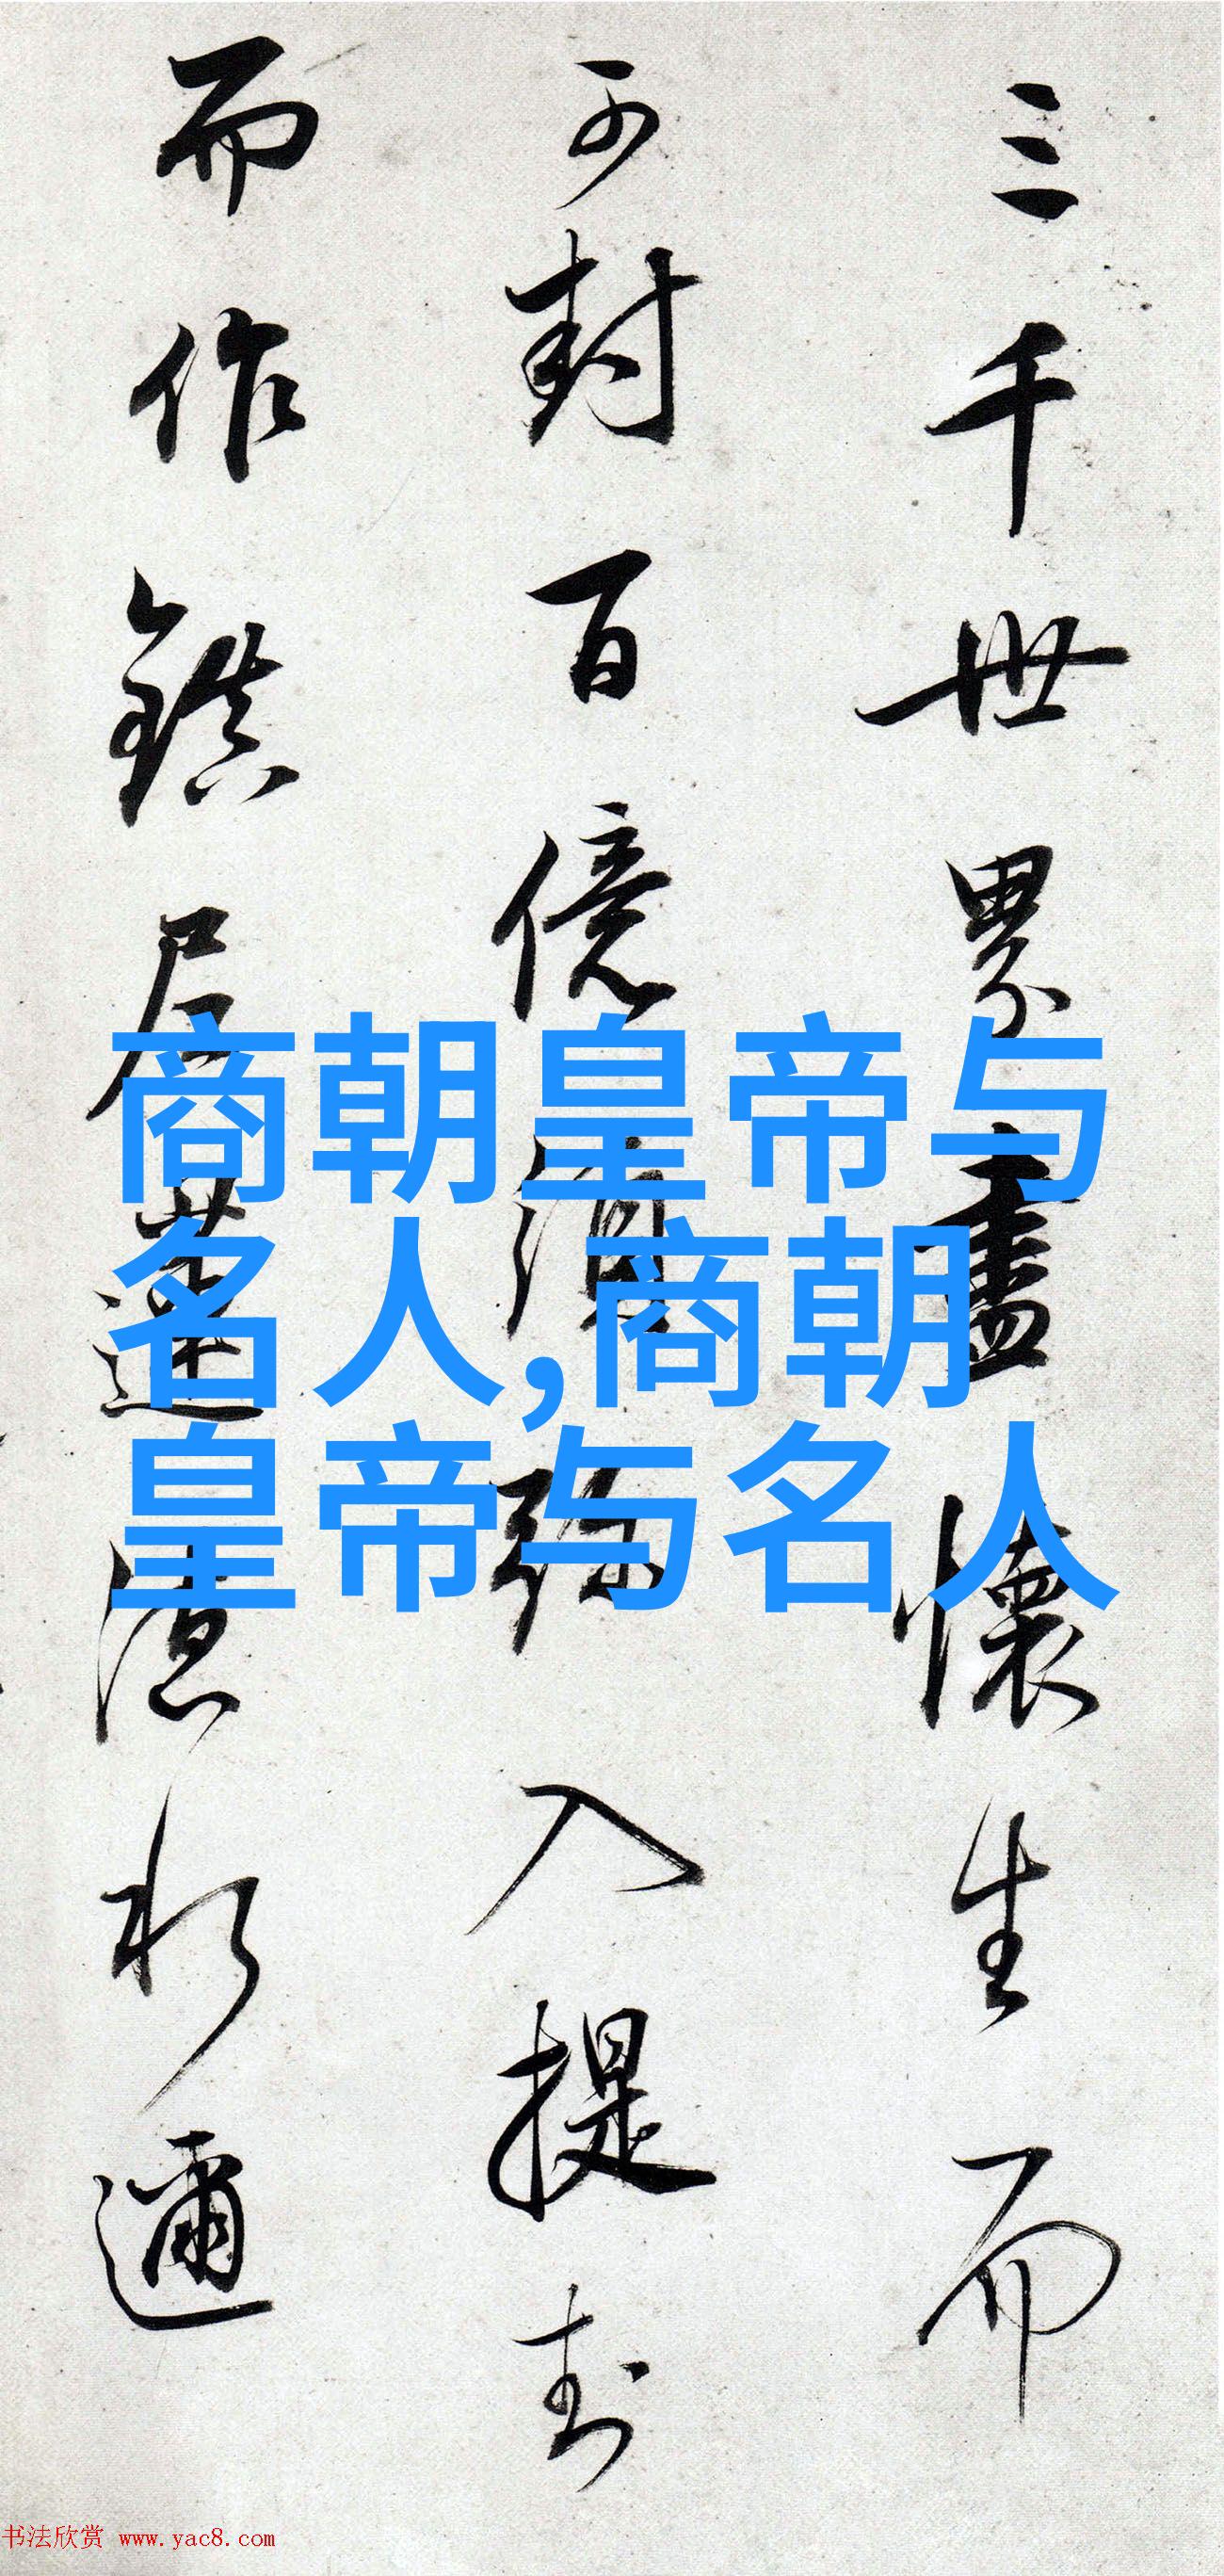 三千世界盡懷生而
可封百億須弥入提封
而作鎮居蓮邇
商朝皇帝与
名人,商朝
皇帝与名人
书法欣赏 www.yac8.com